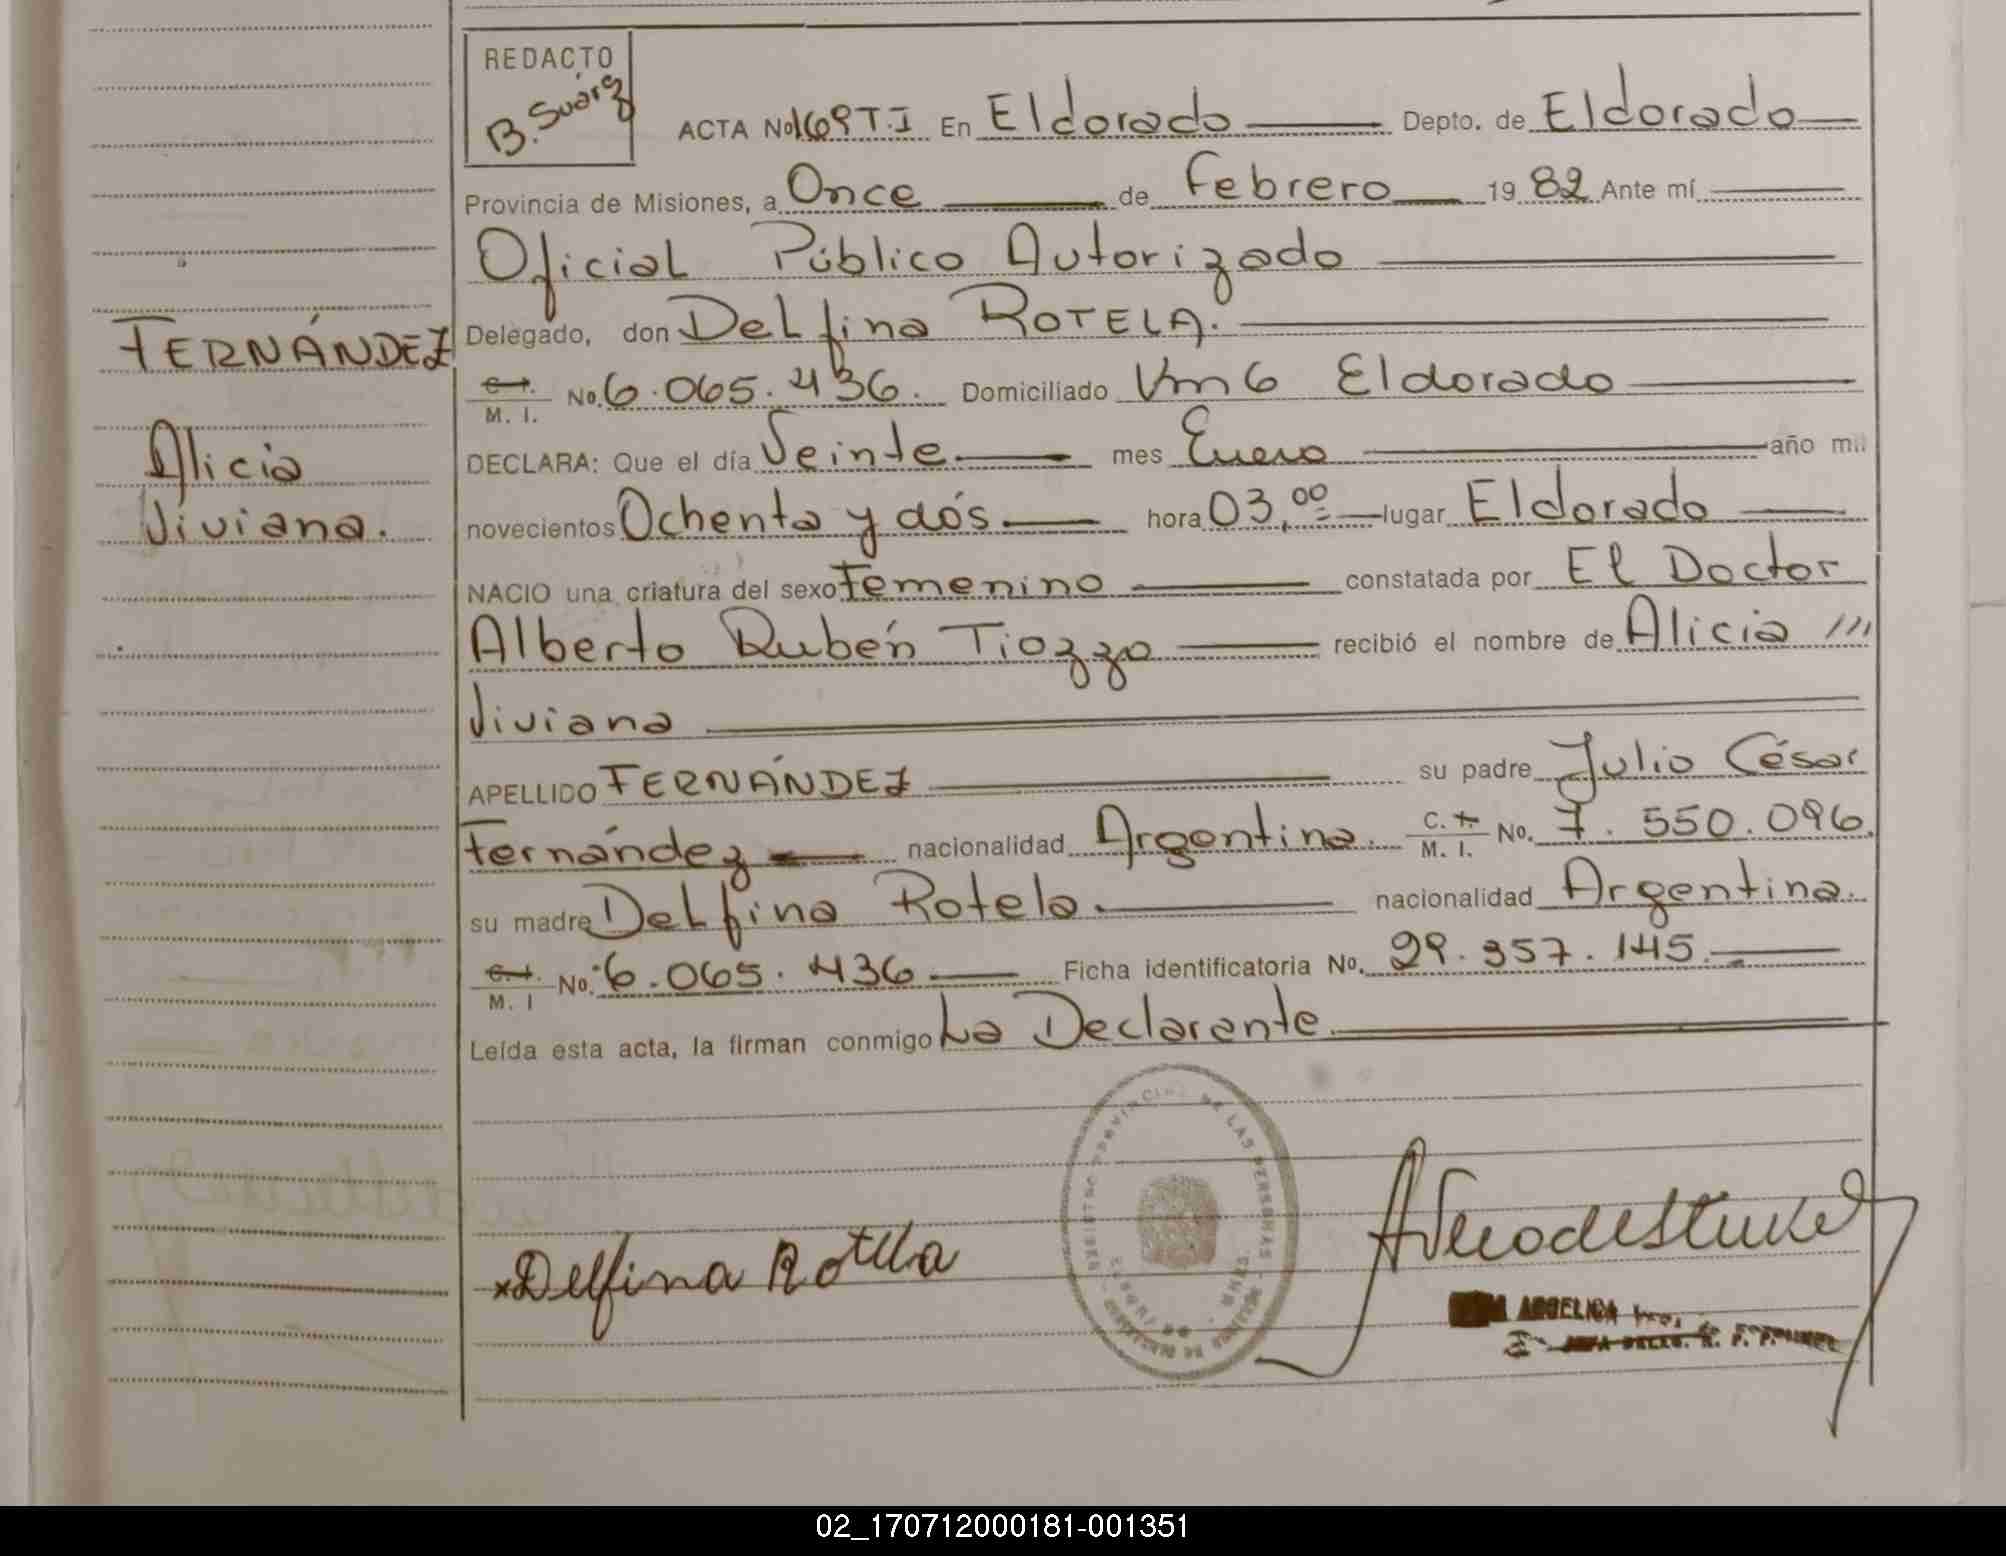 REDACTO
B. Suárez
ACTA No 169 T.I En Eldorado Depto. de Eldorado
Provincia de Misiones, a Once de Febrero 19 82 Ante mí
Oficial Público Autorizado
Delegado, don Delfina ROTELA.
C.I. M. I. No. 6.065.436. Domiciliado Km 6 Eldorado
DECLARA: Que el día Veinte mes Enero año mil
novecientos Ochenta y dós hora 03,00 lugar Eldorado
NACIO una criatura del sexo Femenino constatada por El Doctor
Alberto Rubén Tiozzo recibió el nombre de Alicia
Viviana
APELLIDO FERNÁNDEZ su padre Julio César
Fernández nacionalidad Argentina. C. I. M. I. No. 7.550.096
su madre Delfina Rotela. nacionalidad Argentina.
C.I. M. I No. 6.065.436 Ficha identificatoria No. 29.357.145
Leída esta acta, la firman conmigo La Declarante
FERNÁNDEZ
Alicia
Viviana.
PROVINCIAL DE LAS PERSONAS
x Delfina Rotela
ANGELICA
02_170712000181-001351